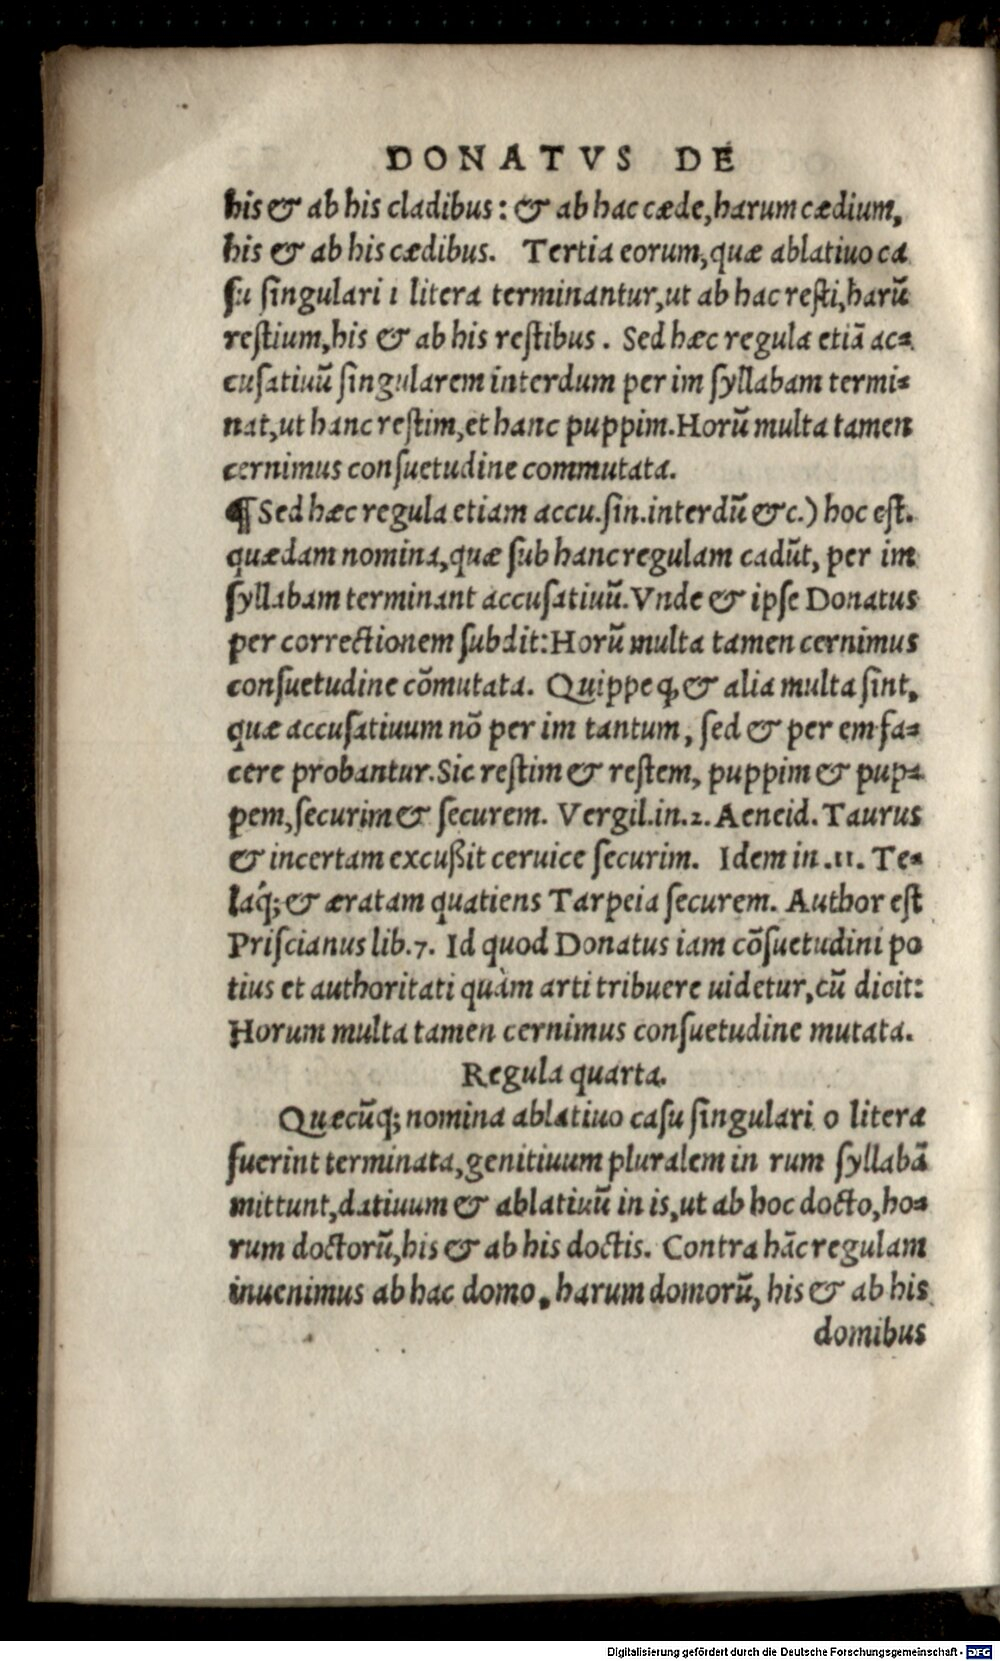 DONATVS DE
his & ab his cladibus: & ab hac cæde, harum cædium,
his & ab his cædibus. Tertia eorum, quæ ablatiuo ca
su singulari i litera terminantur, ut ab hac resti, harū
restium, his & ab his restibus. Sed hæc regula etiā ac⸗
cusatiuū singularem interdum per im syllabam termi⸗
nat, ut hanc restim, et hanc puppim. Horū multa tamen
cernimus consuetudine commutata.
¶ Sed hæc regula etiam accu. sin. interdū &c.) hoc est.
quædam nomina, quæ sub hanc regulam cadūt, per im
syllabam terminant accusatiuū. Vnde & ipse Donatus
per correctionem subdit: Horū multa tamen cernimus
consuetudine cōmutata. Quippe ꝙ & alia multa sint,
quæ accusatiuum nō per im tantum, sed & per em fa⸗
cere probantur. Sic restim & restem, puppim & pup⸗
pem, securim & securem. Vergil. in. 2. Aeneid. Taurus
& incertam excußit ceruice securim. Idem in .11. Te⸗
laq́; & æratam quatiens Tarpeia securem. Author est
Priscianus lib. 7. Id quod Donatus iam cōsuetudini po
tius et authoritati quàm arti tribuere uidetur, cū dicit:
Horum multa tamen cernimus consuetudine mutata.
Regula quarta.
Quæcūq; nomina ablatiuo casu singulari o litera
fuerint terminata, genitiuum pluralem in rum syllabā
mittunt, datiuum & ablatiuū in is, ut ab hoc docto, ho⸗
rum doctorū, his & ab his doctis. Contra hāc regulam
inuenimus ab hac domo, harum domorū, his & ab his
domibus
Digitalisierung gefördert durch die Deutsche Forschungsgemeinschaft - DFG